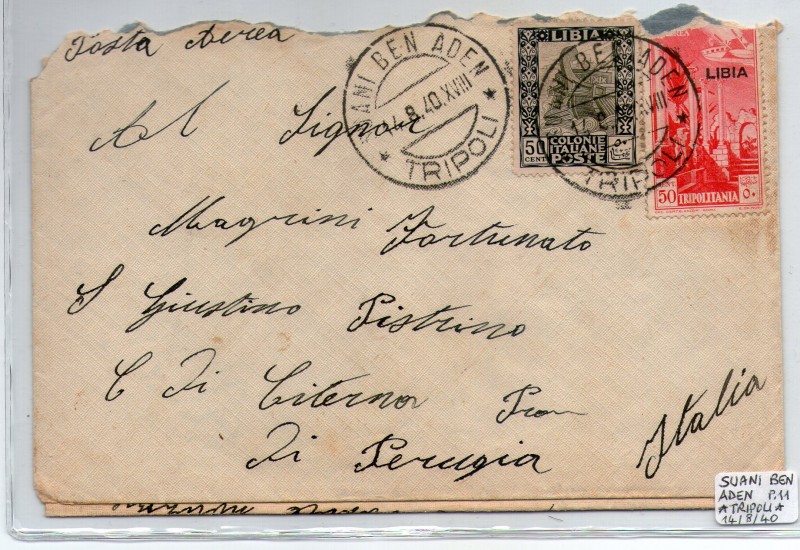 Posta Aerea
SUANI BEN ADEN
8.40.XVIII
* TRIPOLI *
LIBIA
50 CENT
COLONIE ITALIANE
POSTE
BEN ADEN
XVIII
TRIPOLI
LIBIA
50 CENT
TRIPOLITANIA
٥٠
Al Signor
Magrini Fortunato
S Giustino Pistrino
C Di Citerna Prov
Di Perugia
Italia
SUANI BEN
ADEN P.11
*TRIPOLI*
14/8/40